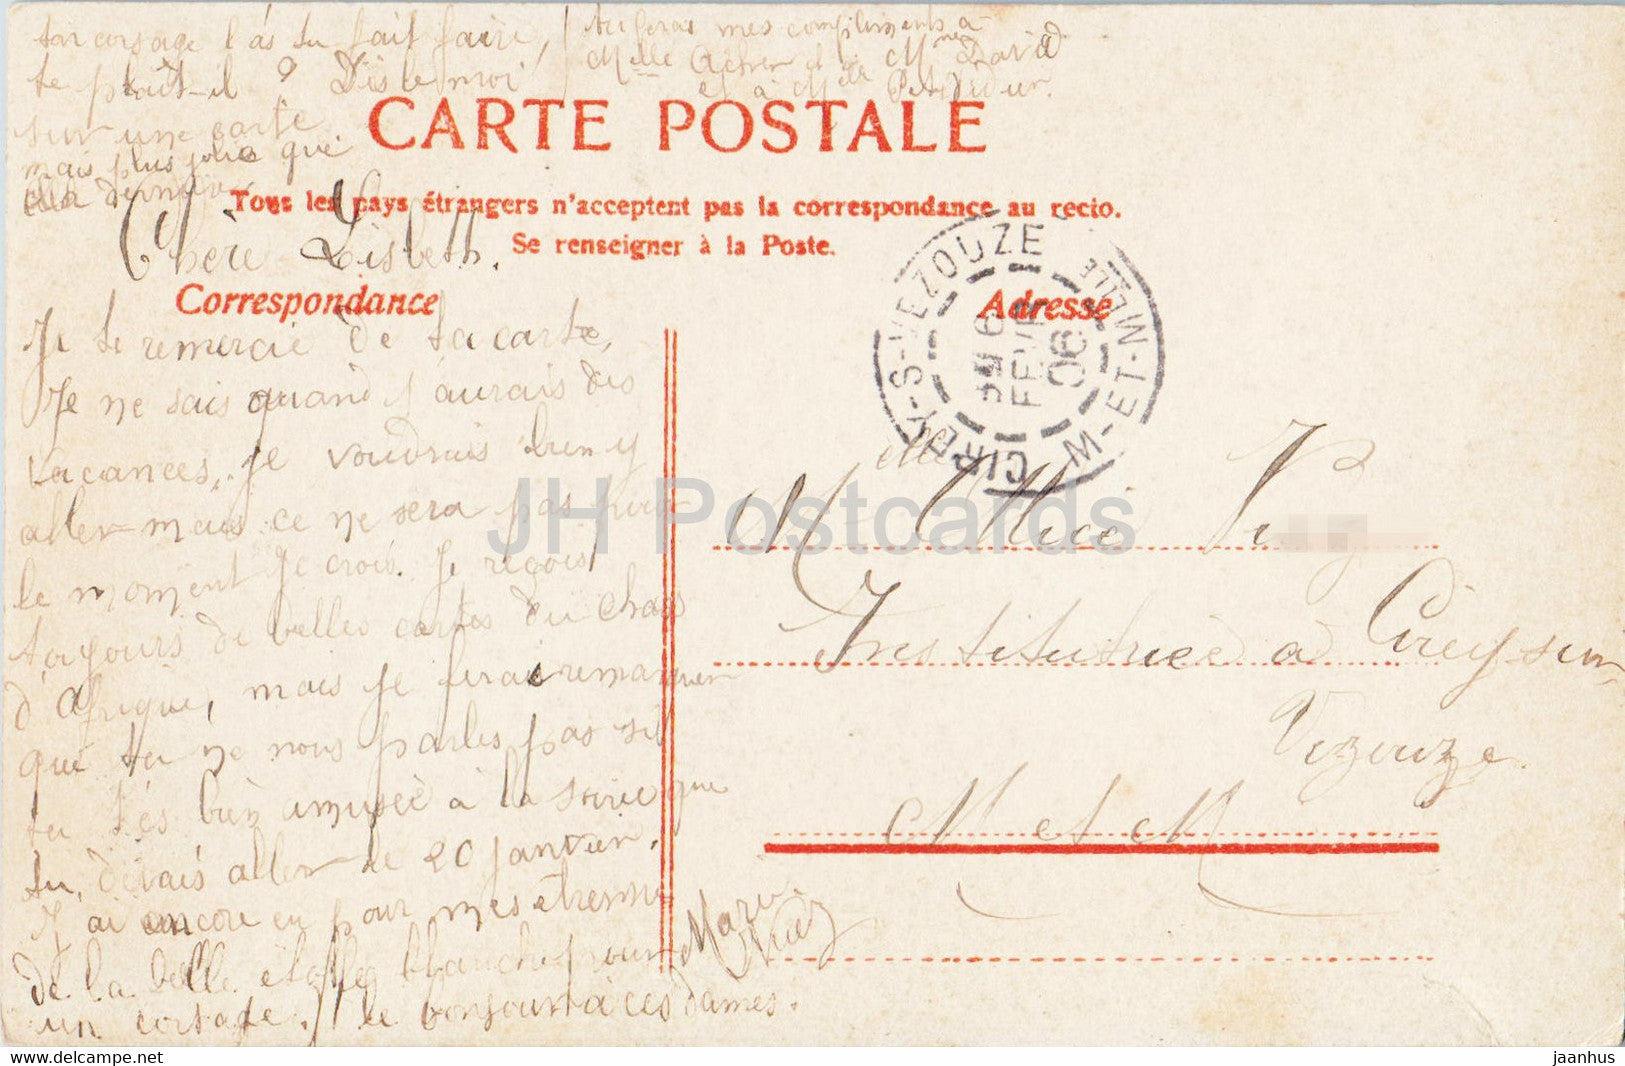 ton corsage l'as tu fait faire,
te plaît-il ? Dis le moi
sur une carte
mais plus jolie que
la dernière
tu feras mes compliments à
Melle et à Mme David
et à Melle
CARTE POSTALE
Tous les pays étrangers n'acceptent pas la correspondance au recto.
Se renseigner à la Poste.
Chère Lisbeth.
Correspondance
Adresse
CIREY-S-VEZOUZE
M-ET-MELLE
6
FEVR
06
Je te remercie de ta carte,
Je ne sais quand j'aurais des
vacances, je voudrais bien y
aller mais ce ne sera pas pour
le moment je crois. Je reçois
toujours de belles cartes du Chass
d'Afrique, mais je ferai remarquer
que tu ne nous parles pas si
tu t'es bien amusée à la soirée que
tu devais aller le 20 janvier.
J'ai encore eu pour mes étrennes
de la belle étoffe blanche pour
un corsage. le bonjour à ces dames.
Marie
Melle Alice
Institutrice à Cirey-sur-
Vezouze
M et M
JH Postcards
www.hippostcard.com
jaanhus